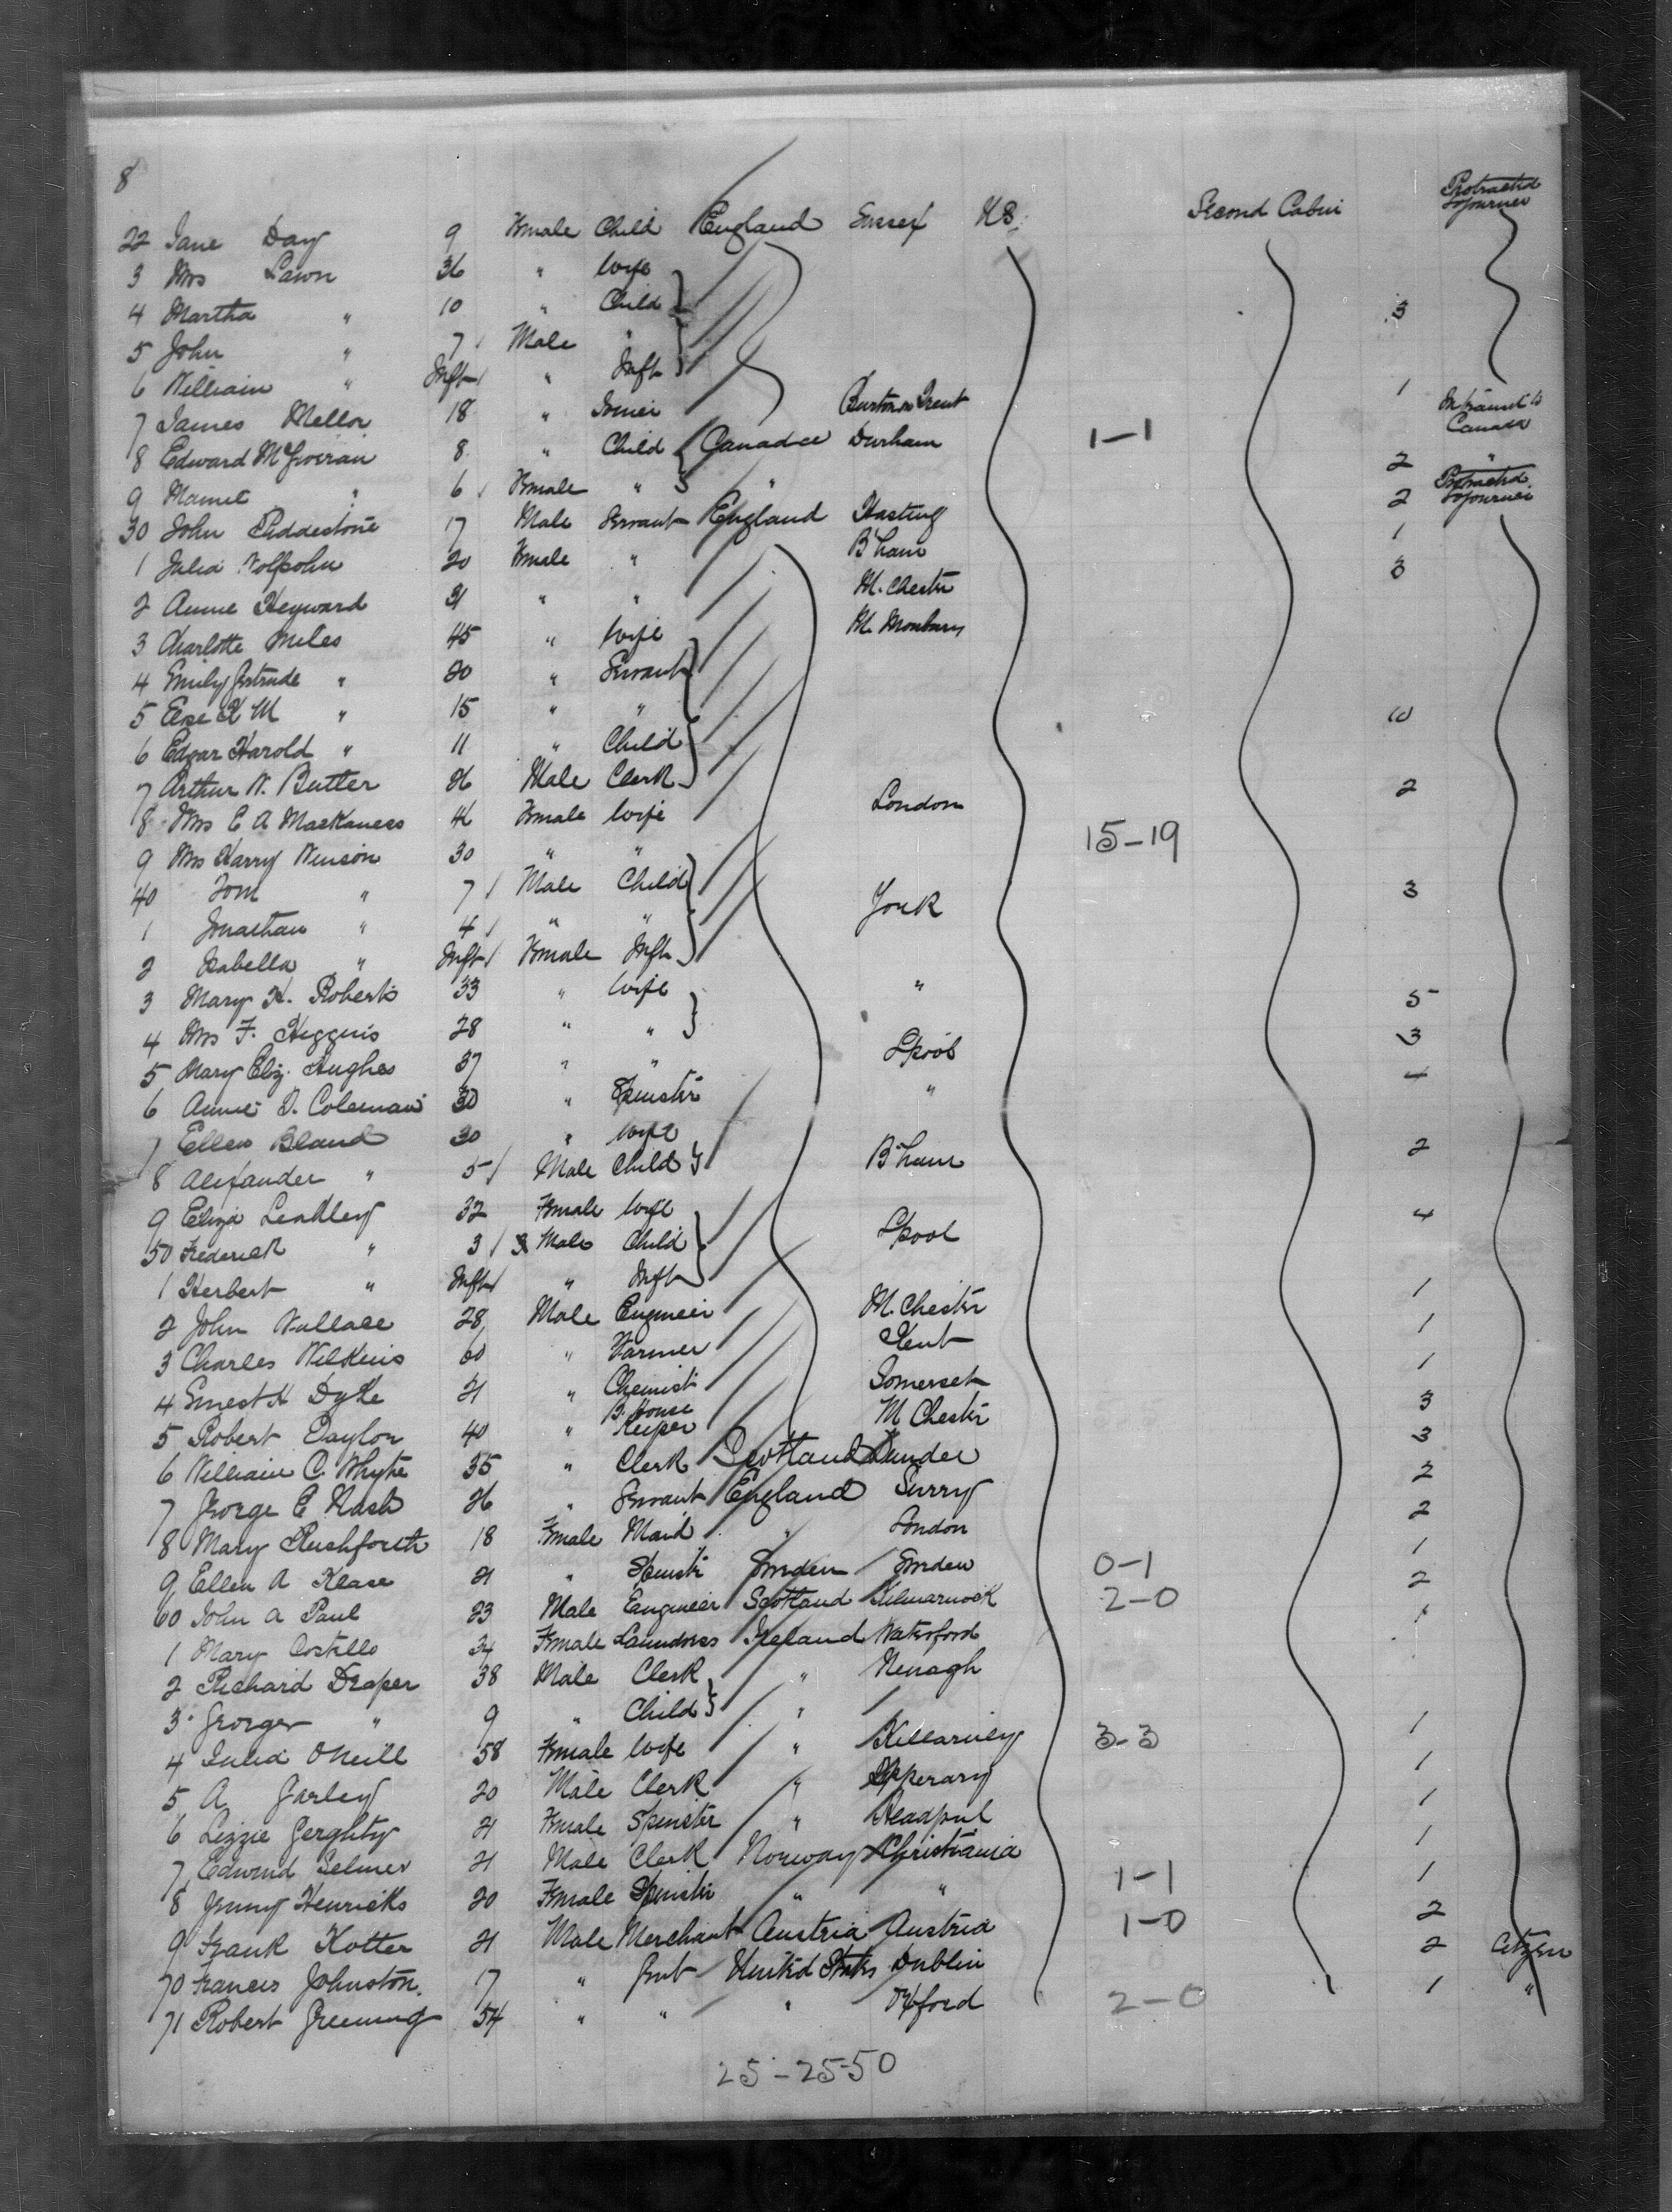 8
Second Cabin Protracted Sojourner
22 Jane Day 9 Female Child England Sussex U.S.
3 Mrs Lawn 36 " Wife
4 Martha " 10 " Child 3
5 John " 7 Male "
6 William " Inft " Inft 1
7 James Mellor 18 " Burton on Trent In transit to Canada
8 Edward 8 " Child Canada Durham 1-1 2 "
9 " 6 Female " " 2 Protracted Sojourner
30 John 17 Male Servant England Hasting 1
1 Julia Wolfsohn 20 Female " B'ham 3
2 Annie Heyward 21 " " M. Chester
3 Charlotte Miles 45 " Wife M.
4 Emily Gertrude " 20 " Servant
5 " 15 " " 10
6 Edgar Harold " 11 " Child
7 Arthur W. Butler 26 Male Clerk 2
8 Mrs E A Mackaness 46 Female Wife London 15-19
9 Mrs Harry 30 " "
40 Tom " 7 Male Child 3
1 Jonathan " 4 " " York
2 Isabella " Inft Female Inft
3 Mary H. Roberts 33 " Wife " 5
4 Mrs F. Higgins 28 " " 3
5 Mary Eliz. Hughes 37 " " L'pool
6 Annie Coleman 30 " Spinster "
7 Ellen Bland 30 " Wife 2
8 Alexander " 5 Male Child B'ham
9 Eliza Leadley 32 Female Wife 4
50 Frederick " 3 Male Child L'pool
1 Herbert " Inft " Inft 1
2 John Wallace 28 Male Engineer M. Chester 1
3 Charles Wilkins 60 " Farmer Kent 1
4 Ernest H Dyke 21 " Chemist Somerset 3
5 Robert Taylor 40 " B. House Keeper M Chester 3
6 William C. Whyte 35 " Clerk Scotland Dundee 2
7 George E Nash 26 " Servant England Surry 2
8 Mary Rushforth 18 Female Maid " London 1
9 Ellen A Klase 21 " Spinster Sweden Sweden 0-1 2
60 John A Paul 23 Male Engineer Scotland Kilmarnock 2-0 1
1 Mary Costello 34 Female Laundress Ireland Waterford
2 Richard Draper 38 Male Clerk " Nenagh
3 George " 9 " Child " 1
4 Julia O'Neill 58 Female Wife " Killarney 3-3 1
5 A Farley 20 Male Clerk " Tipperary 1
6 Lizzie Gerghty 21 Female Spinster " 1
7 Edwind Selmer 21 Male Clerk Norway Christiania 1-1 1
8 Jenny Henricks 20 Female Spinster " " 2
9 Frank Kotter 21 Male Merchant Austria Austria 1-0 2 Citizen
70 Francis Johnston 17 " Gent United States Dublin 1 "
71 Robert Greening 54 " " " Oxford 2-0
25-25-50